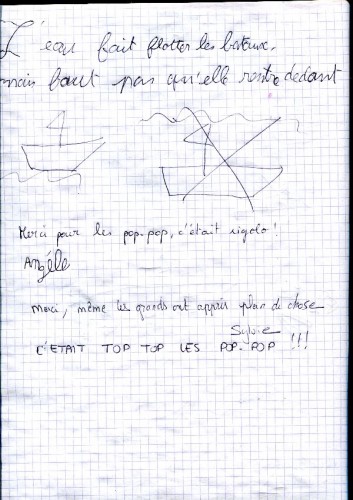 L'eau fait flotter les bateaux,
mais faut pas qu'elle rentre dedant
Merci pour les pop-pop, c'était rigolo !
Angèle
Merci, même les grands ont appris plein de chose
Sylvie
C'ETAIT TOP TOP LES POP-POP !!!